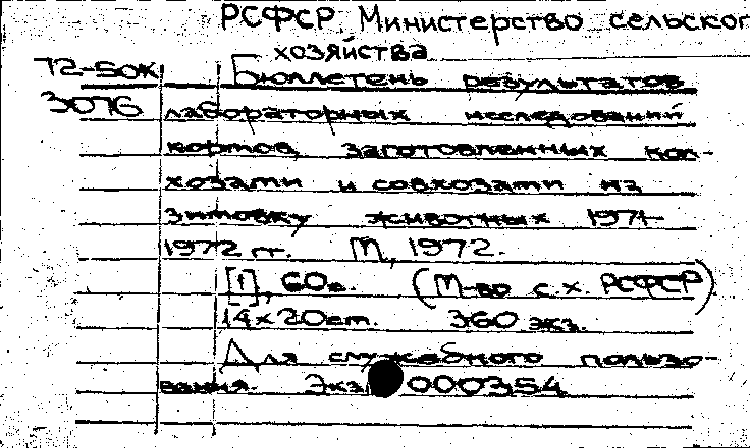 РСФСР Министерство сельског
хозяйства
72-50к Бюллетень результатов
3076 лабораторных исследований
кормов, заготовленных кол-
хозами и совхозами на
зимовку животных 1971-
1972 гг. М, 1972.
[1], 60с. (М-во с.х. РСФСР)
14х20см. 360 экз.
Для служебного пользо-
вания. Экз. 000354